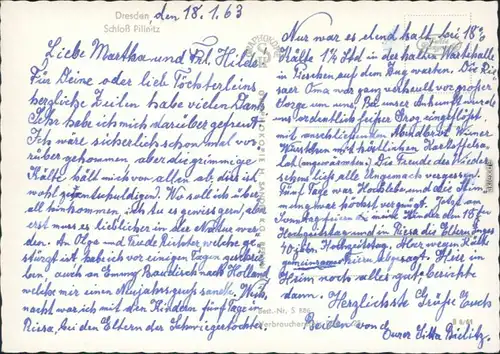 Dresden, den 18.1.63
Schloß Pillnitz
Liebe Martha und Frl. Hilde!
Für Deine oder lieb Töchterleins
herzliche Zeilen habe vielen Dank
Sehr habe ich mich darüber gefreut
Ich wäre sicherlich schon mal vor
rüber gekommen aber die grimmige
Kälte hält mich von allen ab, dies ist
wohl zu entschuldigen. Wo soll ich über
all hinkommen, ich tu es gewiss gern, aber
erst muss es lieblicher in der Natur wer
den. An Olga und Friede Richter welche ge
stürzt ist habe ich vor einigen Tagen geschrie
ben, auch an Emmy Baudisch nach Holland,
welche mir einen Neujahrsgruß sandte. Weih
nacht war ich mit den Kindern fünf Tage in
Riesa, bei den Eltern der Schwiegertochter
Nur war es elend kalt bei 18°
Kälte 1¼ Std in der kalten Wartehalle
in Pieschen auf den Zug warten. Die Rie
saer Oma war ganz verheult vor großer
Sorge um uns. Bei unser Ankunft wurd
uns ordentlich heißer Grog eingeflößt
mit anschließenden Wiener
Würstchen mit köstlichen Kartoffelsa
lat (angewärmten.) Die Freude des Wieder
sehens ließ alle Ungemach vergessen.
Fünf Tage war Hochleben und die Stim
mung war höchst vergnügt. Jetzt am
Sonntag feiern meine Kinder den 15jähr
Hochzeitstag und in Riesa die Eltern
40 jähr. Hochzeitstag. Aber wegen Kälte
gemeinsame Feiern abgesagt. Hier im
Heim noch alles gut, berichte
dann. Herzlichste Grüße Euch
Beiden von Eurer
Best.-Nr. S 886
B 6/61